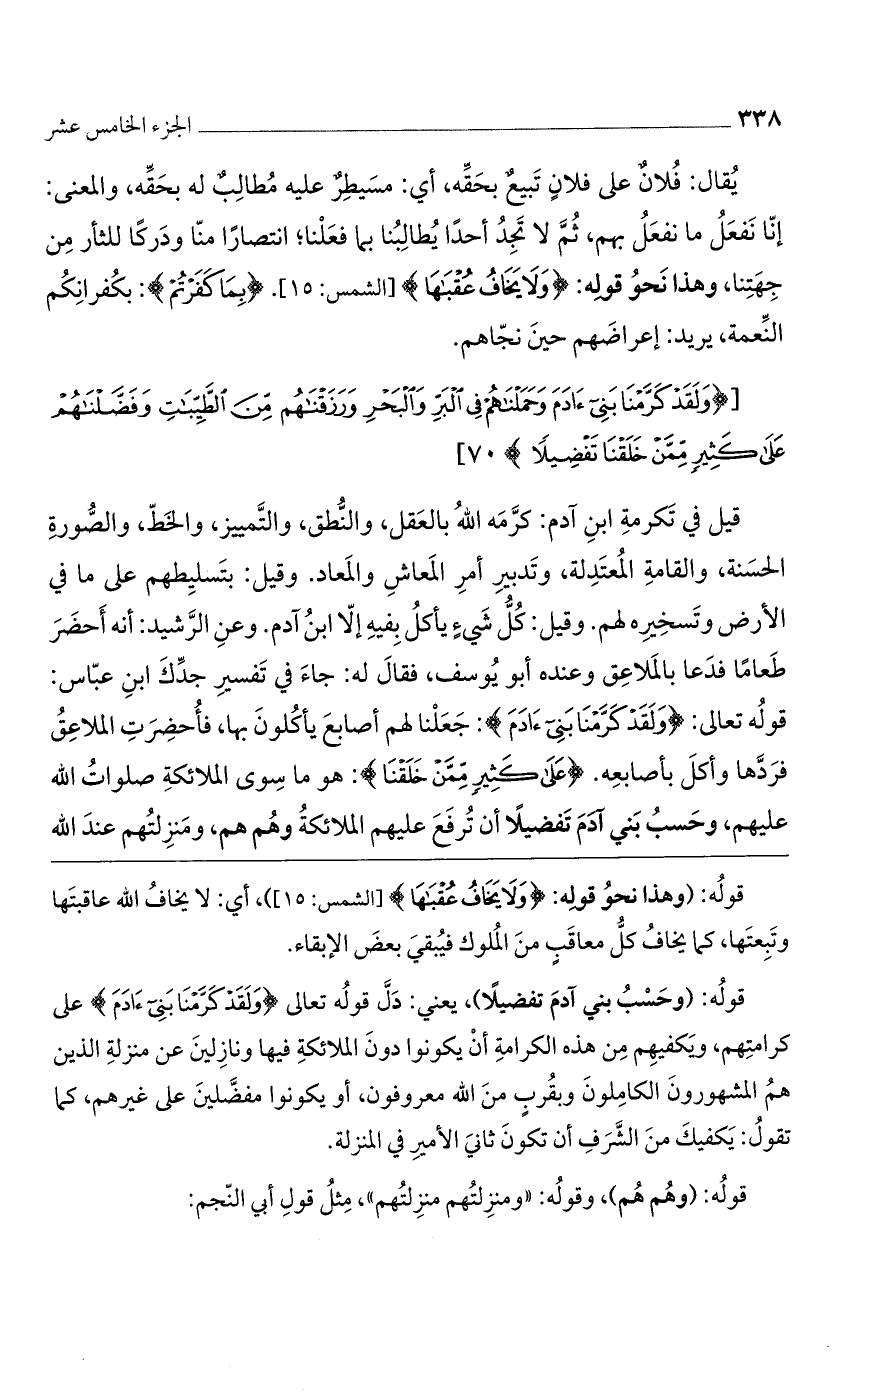 ٣٣٨ الجزء الخامس عشر
يُقال: فُلانٌ على فلانٍ تَبيعٌ بحَقِّه، أي: مسَيطِرٌ عليه مُطالِبٌ له بحَقِّه، والمعنى:
إنّا نَفعَلُ ما نفعَلُ بهم، ثُمَّ لا تَجِدُ أحدًا يُطالِبُنا بما فعَلْنا؛ انتصارًا منّا ودَركًا للثأر مِن
جِهَتِنا، وهذا نَحوُ قولِه: ﴿وَلَا يَخَافُ عُقْبَـٰهَا﴾ [الشمس: ١٥]. ﴿بِمَا كَفَرْتُمْ﴾: بكُفرانِكُم
النِّعمة، يريد: إعراضَهم حينَ نجّاهم.
[﴿وَلَقَدْ كَرَّمْنَا بَنِىٓ ءَادَمَ وَحَمَلْنَـٰهُمْ فِى ٱلْبَرِّ وَٱلْبَحْرِ وَرَزَقْنَـٰهُم مِّنَ ٱلطَّيِّبَـٰتِ وَفَضَّلْنَـٰهُمْ
عَلَىٰ كَثِيرٍ مِّمَّنْ خَلَقْنَا تَفْضِيلًا﴾ ٧٠]
قيل في تَكرمةِ ابنِ آدم: كرَّمَه اللهُ بالعَقل، والنُّطق، والتَّمييز، والخَطّ، والصُّورةِ
الحسَنة، والقامةِ المُعتَدِلة، وتَدبيرِ أمرِ المَعاشِ والمَعاد. وقيل: بتَسليطِهم على ما في
الأرض وتَسخِيرِه لهم. وقيل: كُلُّ شَيءٍ يأكلُ بِفيهِ إلّا ابنُ آدم. وعنِ الرَّشيد: أنه أَحضَرَ
طَعامًا فدَعا بالمَلاعِق وعنده أبو يُوسف، فقالَ له: جاءَ في تَفسيرِ جدِّكَ ابنِ عبّاس:
قولُه تعالى: ﴿وَلَقَدْ كَرَّمْنَا بَنِىٓ ءَادَمَ﴾: جَعَلْنا لهم أصابعَ يأكُلونَ بها، فأُحضِرَتِ الملاعِقُ
فرَدَّها وأكلَ بأصابعِه. ﴿عَلَىٰ كَثِيرٍ مِّمَّنْ خَلَقْنَا﴾: هو ما سِوى الملائكةِ صلواتُ الله
عليهم، وحَسبُ بَني آدَمَ تَفضيلًا أن تُرفَعَ عليهم الملائكةُ وهُم هم، ومَنزِلتُهم عندَ الله
قولُه: (وهذا نحوُ قولِه: ﴿وَلَا يَخَافُ عُقْبَـٰهَا﴾ [الشمس: ١٥])، أي: لا يخافُ الله عاقبتَها
وتَبِعتَها، كما يخافُ كلُّ معاقَبٍ منَ المُلوك فيُبقيَ بعضَ الإبقاء.
قولُه: (وحَسْبُ بني آدمَ تفضيلًا)، يعني: دَلَّ قولُه تعالى ﴿وَلَقَدْ كَرَّمْنَا بَنِىٓ ءَادَمَ﴾ على
كرامتِهم، ويَكفيهِم مِن هذه الكرامةِ أنْ يكونوا دونَ الملائكةِ فيها ونازِلينَ عن منزلةِ الذين
همُ المشهورونَ الكامِلونَ وبقُربٍ منَ الله معروفون، أو يكونوا مفضَّلينَ على غيرِهم، كما
تقولُ: يَكفيكَ منَ الشَّرَفِ أن تكونَ ثانيَ الأميرِ في المنزلة.
قولُه: (وهُم هُم)، وقولُه: «ومنزِلتُهم منزِلتُهم»، مِثلُ قولِ أبي النّجم: